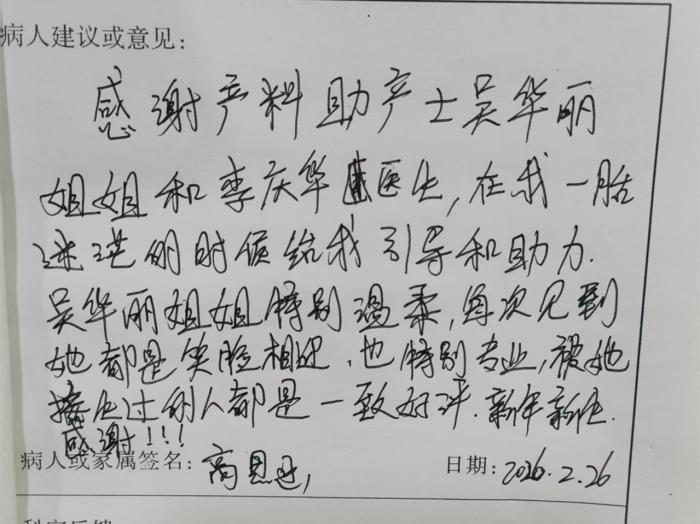 病人建议或意见:
感谢产科助产士吴华丽
姐姐和李庆华医生,在我一胎
迷茫的时候给我引导和助力.
吴华丽姐姐特别温柔,每次见到
她都是笑脸相迎.也特别专业,被她
接生过的人都是一致好评.新年新
感谢!!!
病人或家属签名: 高
日期: 2026.2.26